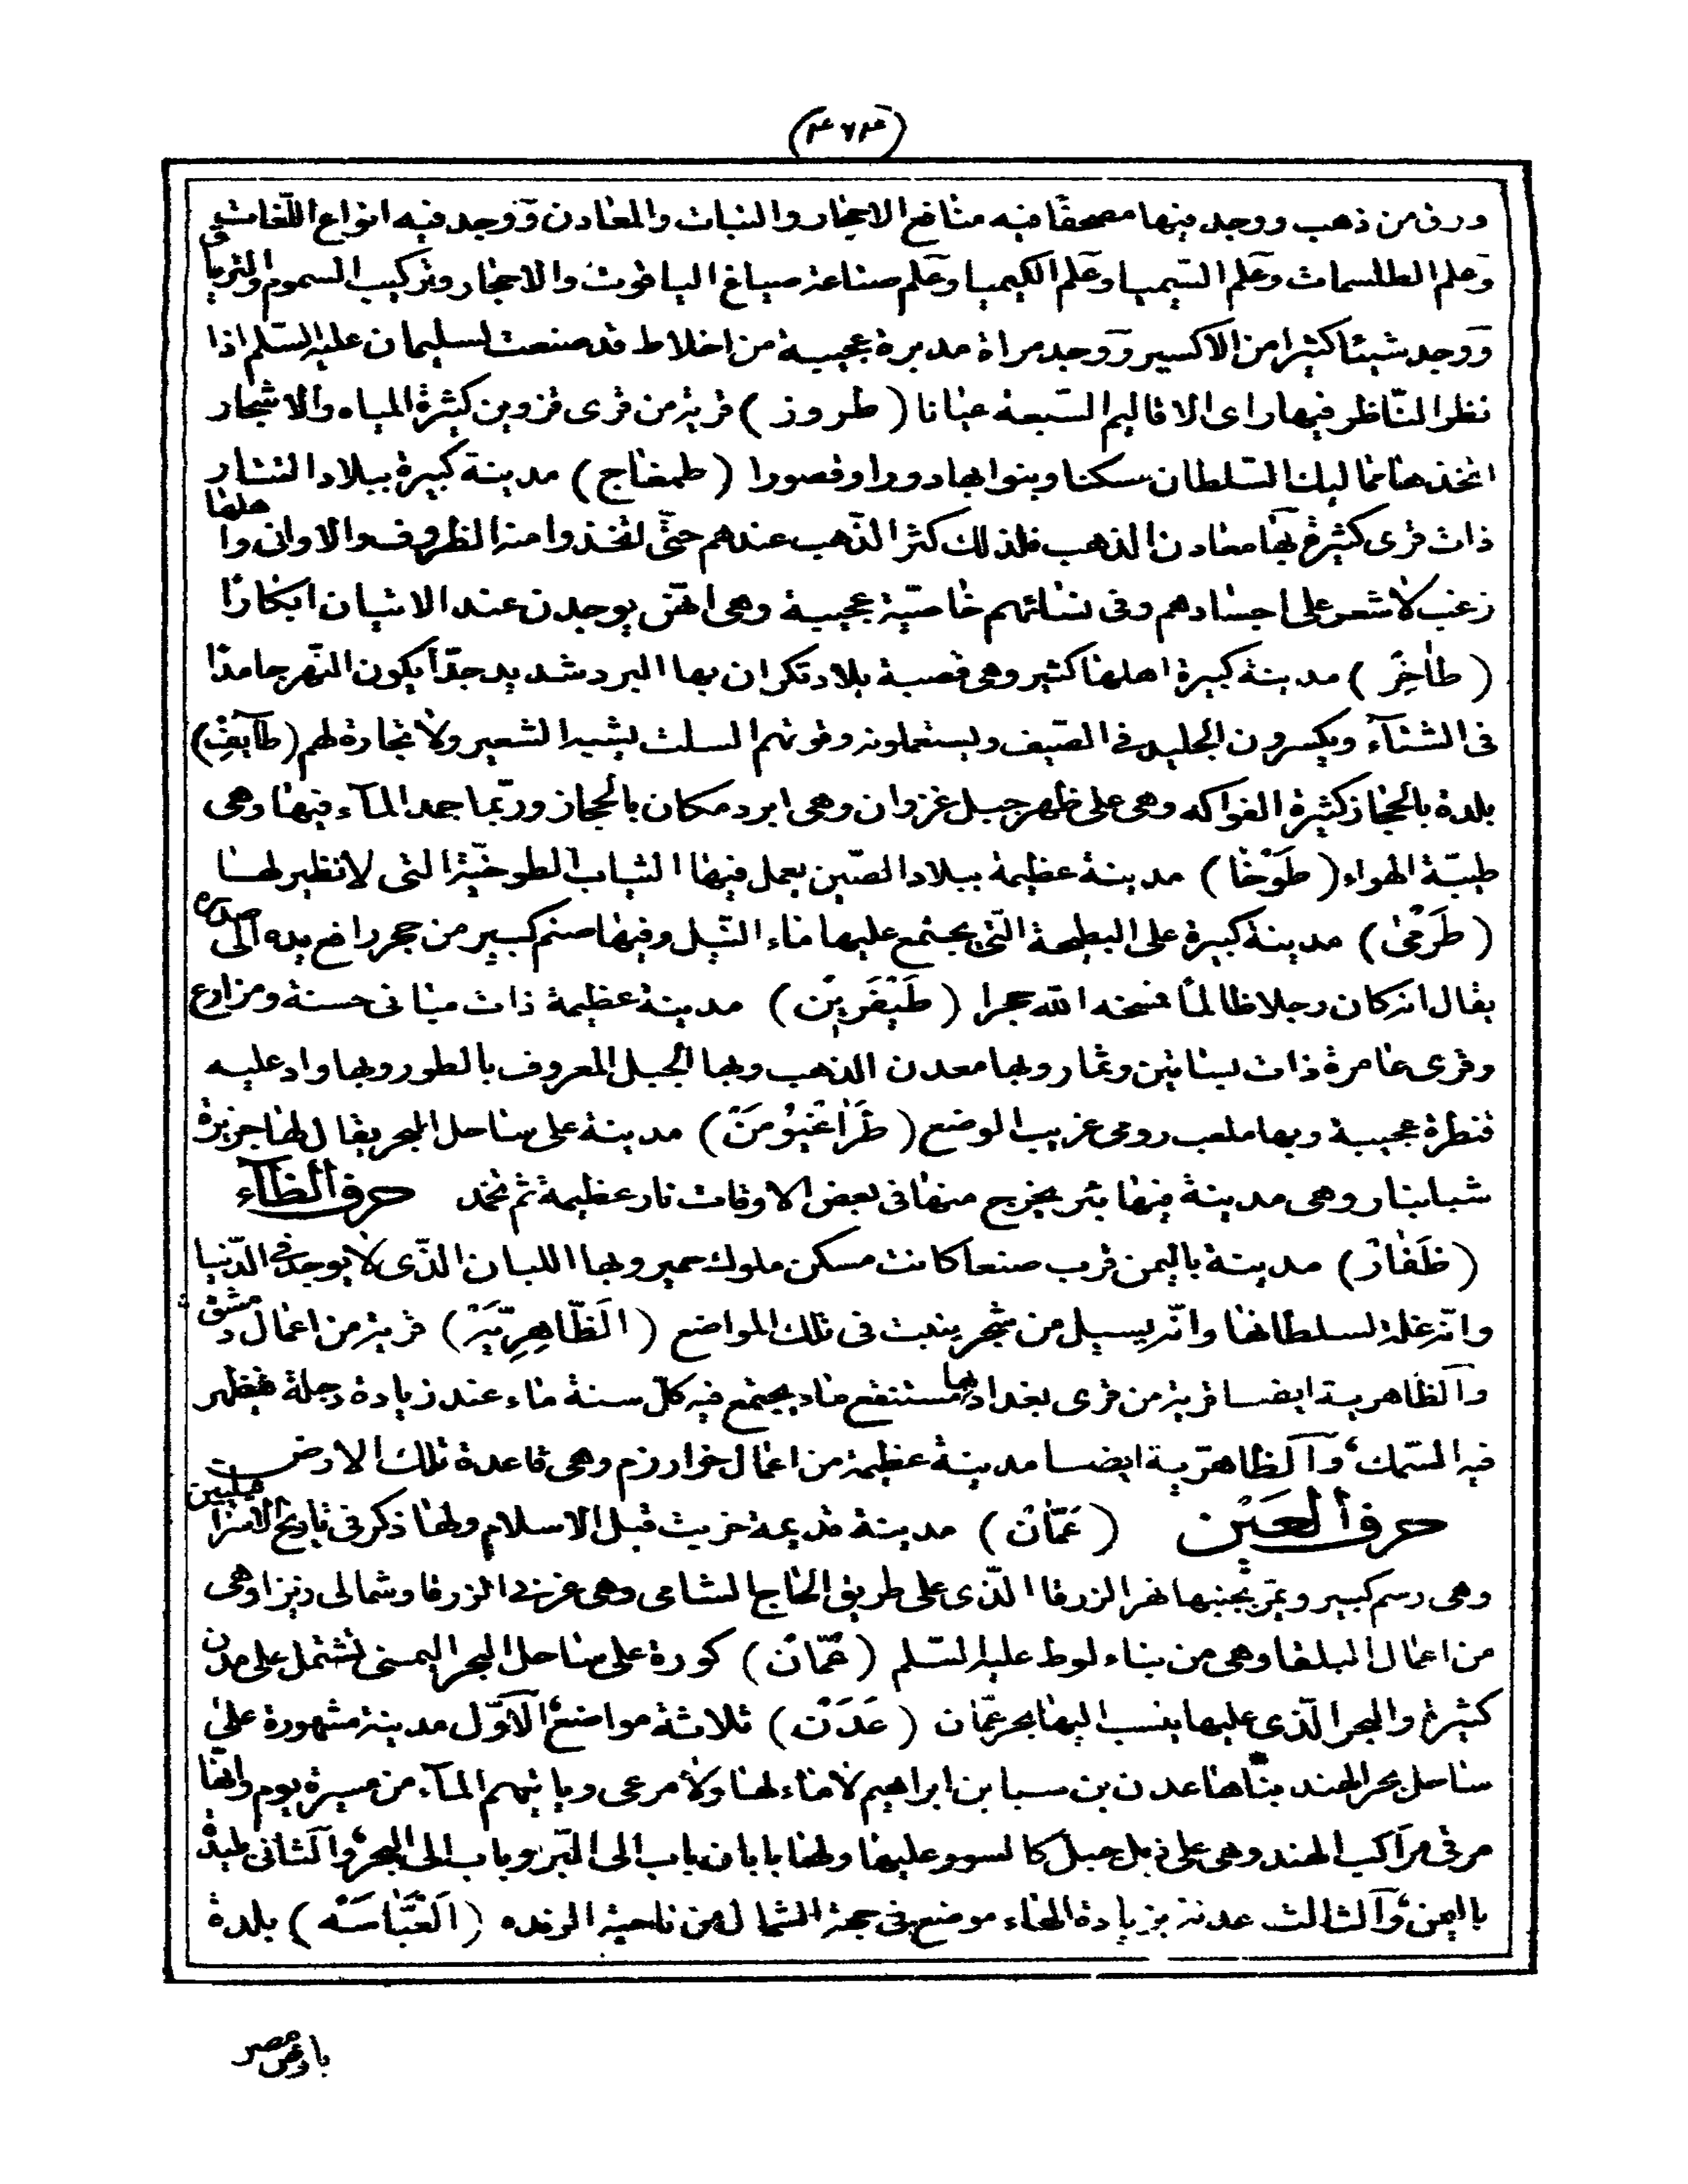 (٤٦٤)
ورق من ذهب ووجد فيها مصحفًا فيه منافع الاحجار والنبات والمعادن وَوجد فيه انواع اللّغات
وَعلم الطلسمات وعَلم السّيميا وعَلم الكيميا وعَلم صناعة صباغ الياقوت والاحجار وتركيب السموم والترياق
وَوجد شيئا كثيرا من الاكسير وَوجد مراة مدبرة عجيبة من اخلاط قد صنعت لسليمان عليه السّلم اذا
نظر النّاظر فيها راى الاقاليم السّبعة عيانا (طروز) قرية من قرى قزوين كثيرة المياه والاشجار
اتخذها مماليك السّلطان سكنا وبنوا بها دورا وقصورا (طمغاج) مدينة كبيرة ببلاد التتار
ذات قرى كثيرة بها معادن الذهب فلذلك كثر الذّهب عندهم حتّى اتخذوا منه الظروف والاوانى واهلها
زعب لا شعر على اجسادهم وفى نسائهم خاصّية عجيبة وهى انهنّ يوجدن عند الاتيان ابكارًا
(طاخِرَ) مدينة كبيرة اهلها كثير وهى قصبة بلاد تكران بها البرد شديد جدّا يكون النّهر جامدًا
فى الشتآء ويكسرون الجليد فى الصّيف ويستعملونه وقوتهم السلت يشبه الشعير ولا تجارة لهم (طآيِف)
بلدة بالحجاز كثيرة الفواكه وهى على ظهر جبل غزوان وهى ابرد مكان بالحجاز وربّما جمد المآء فيها وهى
طيبّة الهواء (طَوْخا) مدينة عظيمة ببلاد الصّين يعمل فيها الثياب الطوخيّة التى لا نظير لها
(طَرَمْى) مدينة كبيرة على البطيحة الّتى يجتمع عليها ماء النّيل وفيها صنم كبير من حجر رافع يده الى صدره
يقال انه كان رجلا ظالمًا فمسخه الله حجرا (طَبْقَرِيّن) مدينة عظيمة ذات مبانى حسنة ومزارع
وقرى عامرة ذات بساتين وثمار وبها معدن الذهب وبها الجبل المعروف بالطور وبها واد عليه
قنطرة عجيبة وبها ملعب رومى غريب الوضع (طَرَاغْنيُومَن) مدينة على ساحل البحر يقال لها جزيرة
شبابنار وهى مدينة فيها بئر يخرج منها فى بعض الاوقات نار عظيمة ثم تخمد حرف الظآء
(ظَفار) مدينة باليمن قرب صنعا كانت مسكن ملوك حمير وبها اللبان الذّى لا يوجد فى الدّنيا
وانّه غلة لسلطانها وانّه يسيل من شجر ينبت فى تلك المواضع (الَظّاهِرِيّة) قرية من اعمال دمشق
وآلظاهرية ايضا قرية من قرى بغداد بها مستنقع ماد يجتمع فيه كلّ سنة ماء عند زيادة دجلة فيظهر
فيه السّمك وآلظاهرّية ايضا مدينة عظيمة من اعمال خوارزم وهى قاعدة تلك الارض
حرف العَيْن (عَمّان) مدينة قديمة خربت قبل الاسلام ولها ذكر فى تاريخ الاسرائيليين
وهى رسم كبير ويمرّ بجنبها نهر الزرقا الذّى على طريق الحاج الشامى وهى غربى الزرقا وشمالى زيزا وهى
من اعمال البلقا وهى من بناء لوط عليه السّلم (عُمّان) كورة على ساحل البحر اليمنى تشتمل على مدن
كثيرة والبحر الّذى عليها ينسب اليها بحر عمّان (عَدَن) ثلاثة مواضع الآوّل مدينة مشهورة على
ساحل بحر الهند بناها عدن بن سبا بن ابراهيم لا ماء لها ولا مرعى وياتيهم المآء من مسيرة يوم وانها
مرفى مراكب الهند وهى على ذيل جبل كالسور عليها ولها بابان باب الى البّر وباب الى البحر وآلثانى بلدة
باليمن وآلثالث عدنة بزيادة الهاء موضع فى جهة الشمال من ناحية الربذه (الَعَبّاسَه) بلدة
بارض مصر